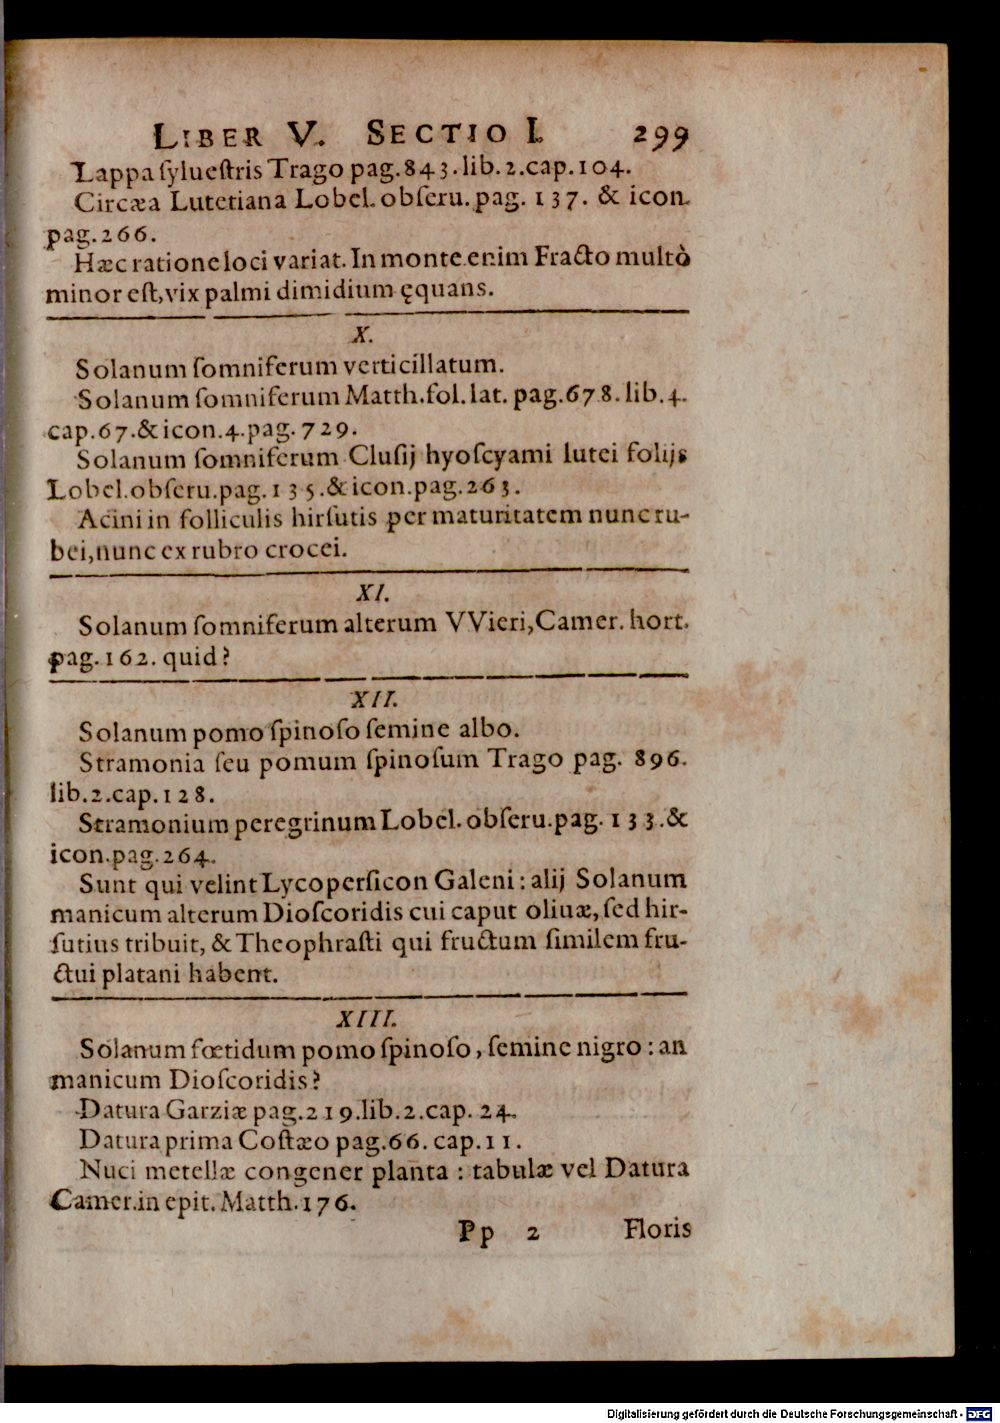 LIBER V. SECTIO I. 299
Lappa ſylueſtris Trago pag.843.lib.2.cap.104.
Circæa Lutetiana Lobel.obſeru.pag. 137. & icon.
pag.266.
Hæc ratione loci variat. In monte enim Fracto multò
minor eſt,vix palmi dimidium ęquans.
X.
Solanum ſomniferum verticillatum.
Solanum ſomniferum Matth.fol.lat. pag.678.lib.4.
cap.67.& icon.4.pag.729.
Solanum ſomniferum Cluſij hyoſcyami lutei folijs
Lobel.obſeru.pag.135.& icon.pag.263.
Acini in folliculis hirſutis per maturitatem nunc ru-
bei,nunc ex rubro crocei.
XI.
Solanum ſomniferum alterum VVieri,Camer. hort.
pag.162. quid?
XII.
Solanum pomo ſpinoſo ſemine albo.
Stramonia ſeu pomum ſpinoſum Trago pag. 896.
lib.2.cap.128.
Stramonium peregrinum Lobel.obſeru.pag.133.&
icon.pag.264.
Sunt qui velint Lycoperſicon Galeni: alij Solanum
manicum alterum Dioſcoridis cui caput oliuæ,ſed hir-
ſutius tribuit, & Theophraſti qui fructum ſimilem fru-
ctui platani habent.
XIII.
Solanum fœtidum pomo ſpinoſo, ſemine nigro: an
manicum Dioſcoridis?
Datura Garziæ pag.219.lib.2.cap. 24.
Datura prima Coſtæo pag.66. cap.11.
Nuci metellæ congener planta : tabulæ vel Datura
Camer.in epit. Matth.176.
Pp 2 Floris
Digitalisierung gefördert durch die Deutsche Forschungsgemeinschaft - DFG